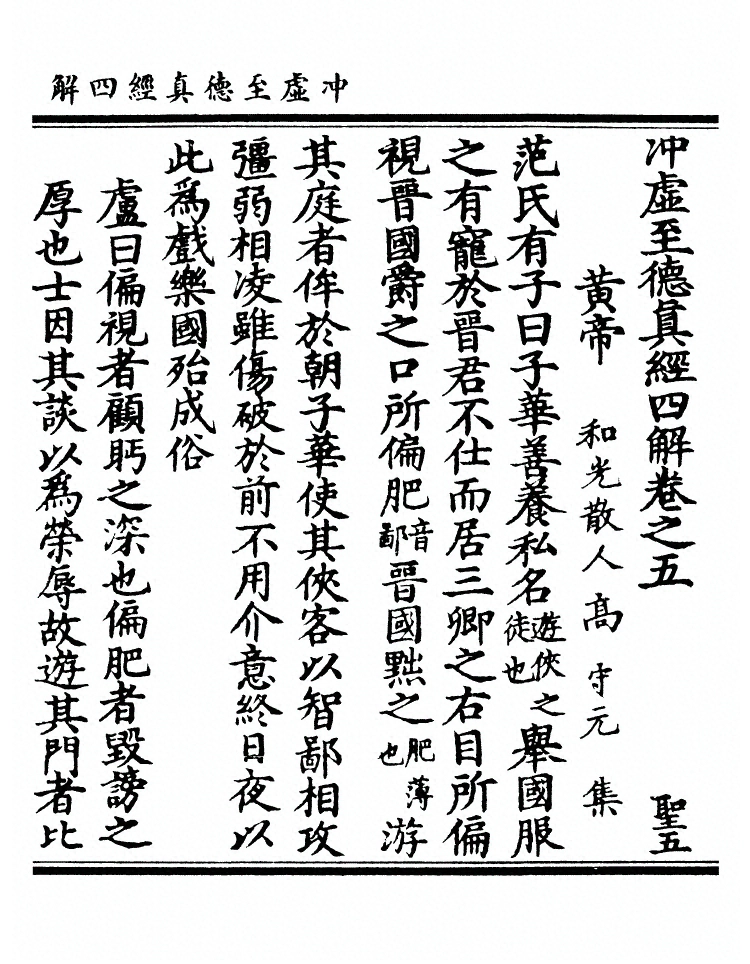 冲虛至德真經四解
冲虛至德眞經四解卷之五 聖五
黃帝 和光散人高守元集
范氏有子曰子華善養私名遊俠之徒也舉國服
之有寵於晉君不仕而居三卿之右目所偏
視晉國爵之口所偏肥音鄙晉國黜之肥薄也游
其庭者侔於朝子華使其俠客以智鄙相攻
彊弱相凌雖傷破於前不用介意終日夜以
此爲戲樂國殆成俗
盧曰偏視者顧眄之深也偏肥者毀謗之
厚也士因其談以爲榮辱故遊其門者比